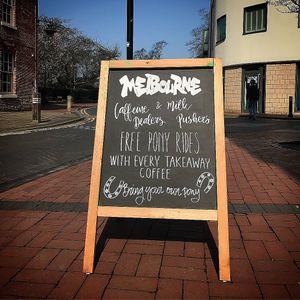 MELBOURNE
Caffeine & Milk
Dealers, Pushers
FREE PONY RIDES
WITH EVERY TAKEAWAY
COFFEE
Bring your own pony